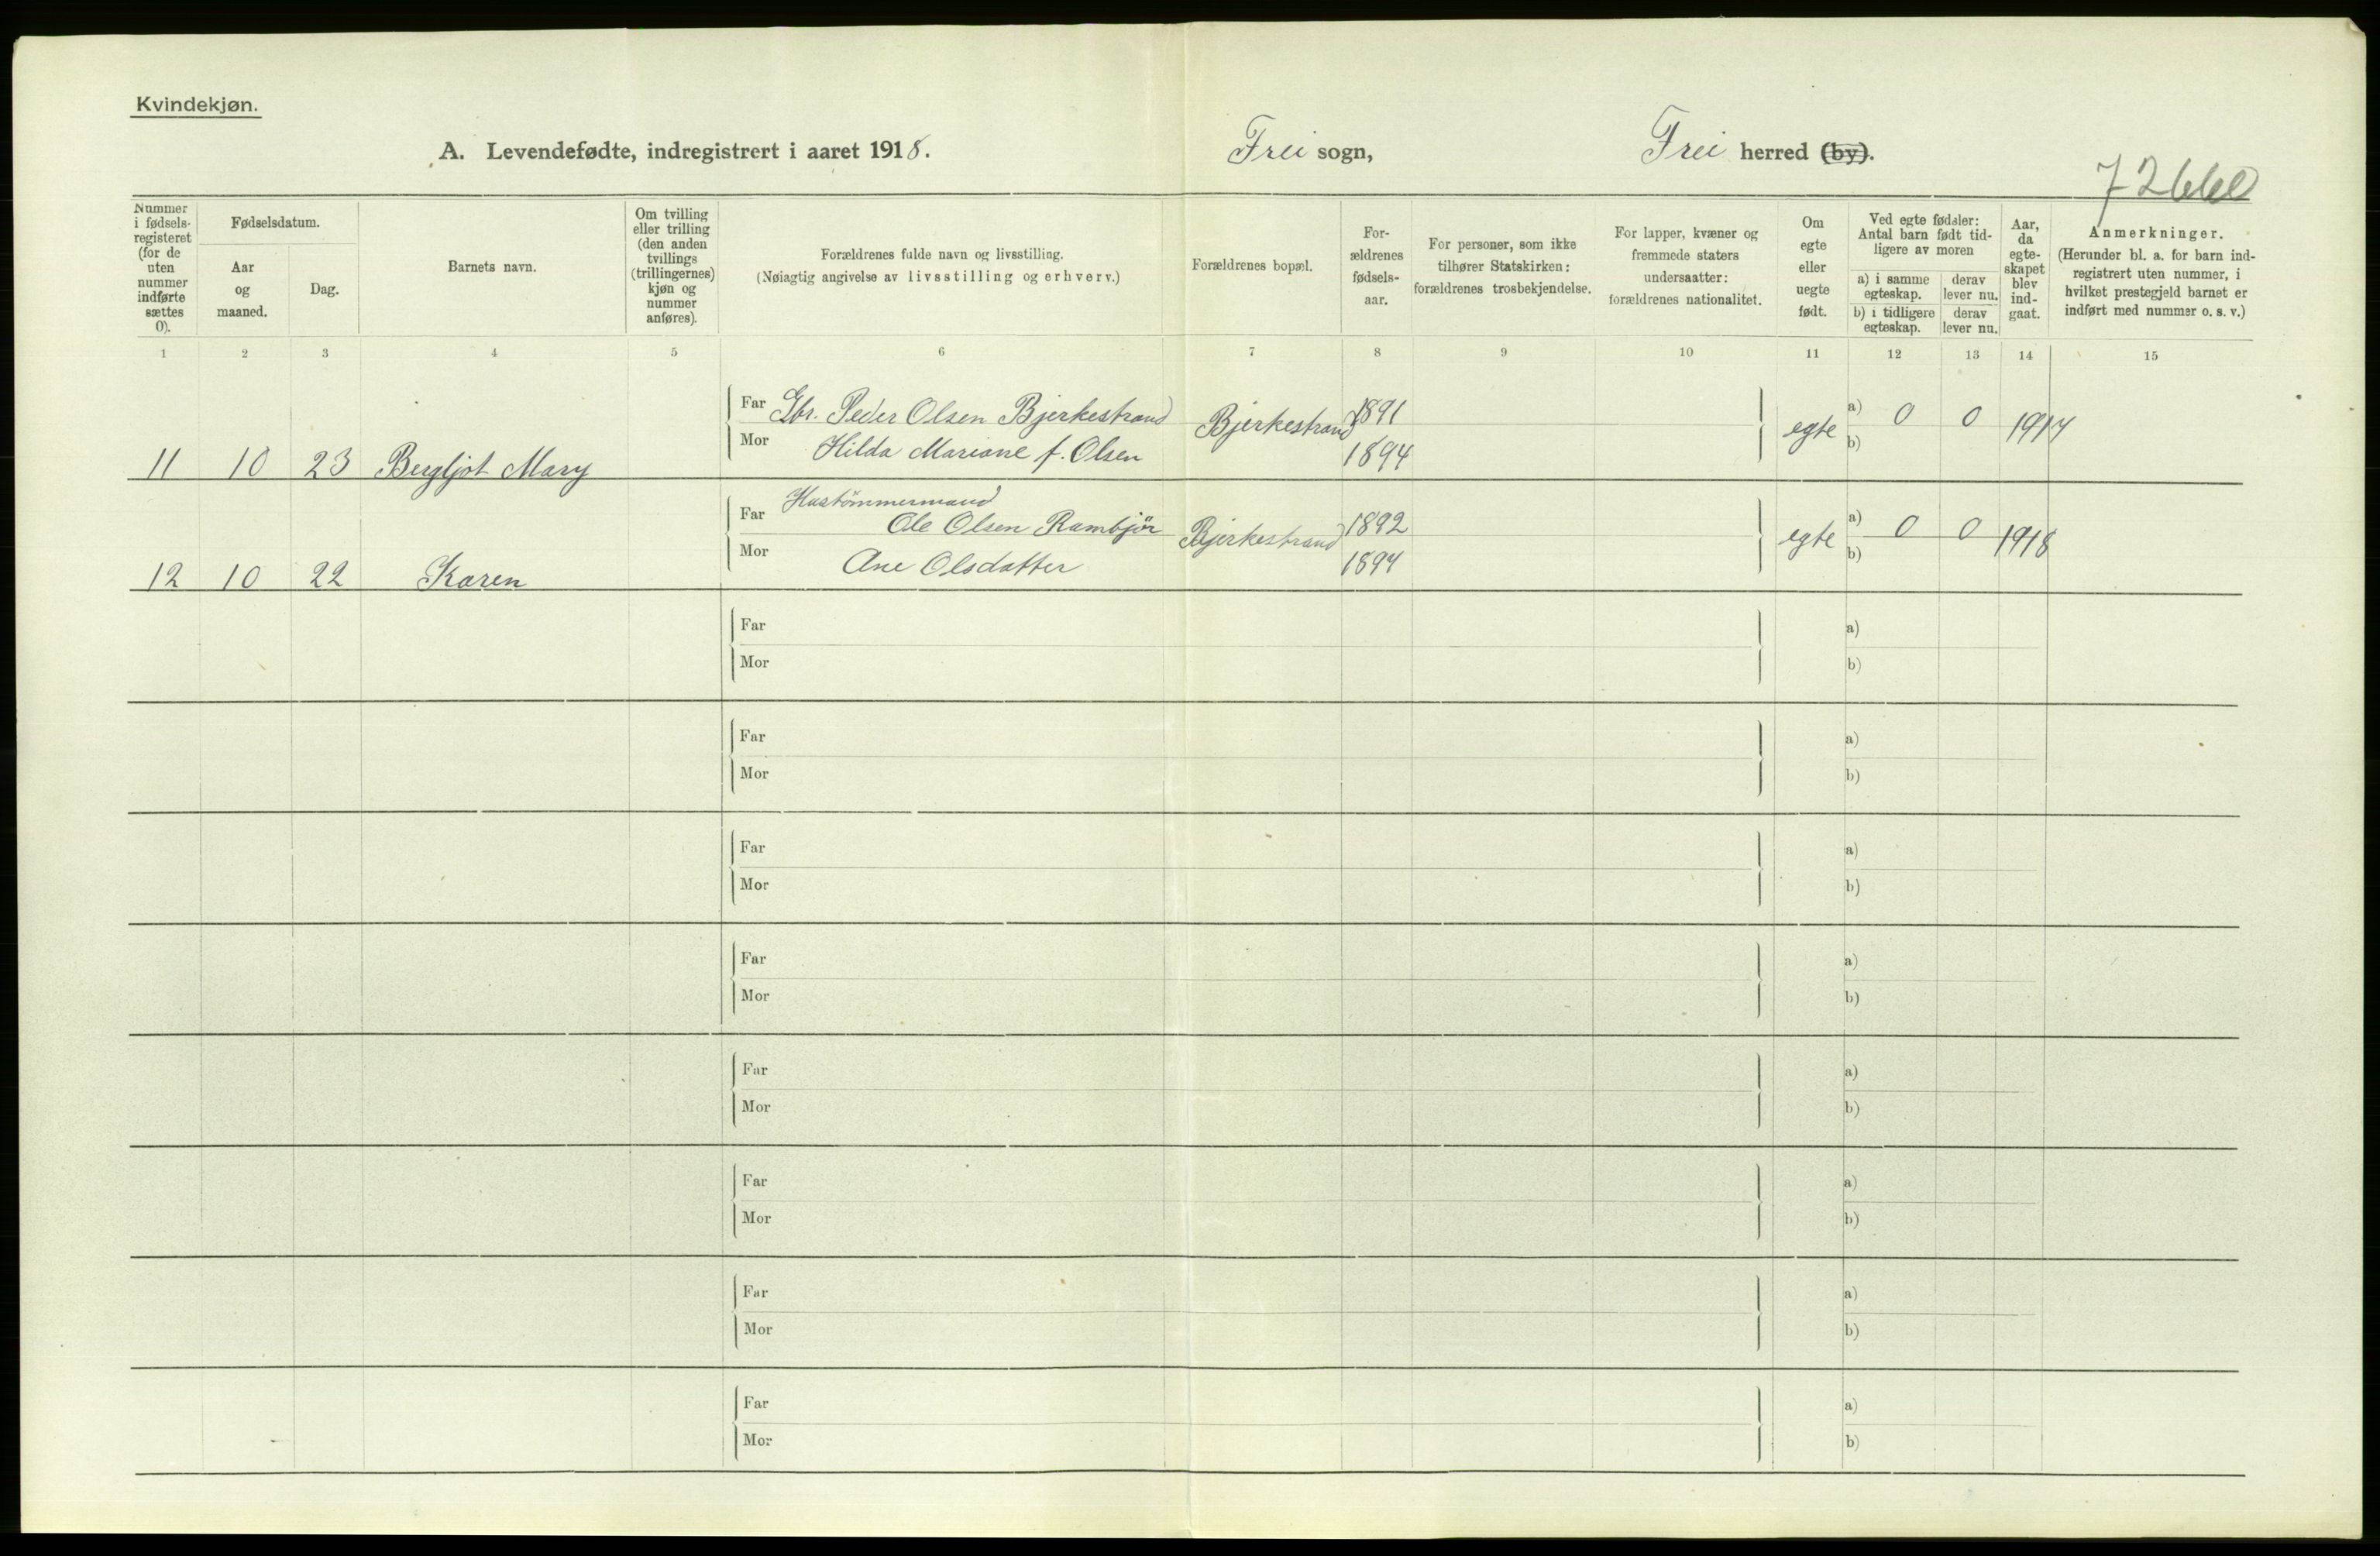 Kvindekjøn.
A. Levendefødte, indregistrert i aaret 1918. Frei sogn, Frei herred (by).
Nummer i fødsels-registeret (for de uten nummer indførte sættes 0).
Fødselsdatum.
Aar og maaned.
Dag.
Barnets navn.
Om tvilling eller trilling (den anden tvillings (trillingernes) kjøn og nummer anføres).
Forældrenes fulde navn og livsstilling.
(Nøiagtig angivelse av livsstilling og erhverv.)
Forældrenes bopæl.
For-ældrenes fødsels-aar.
For personer, som ikke tilhører Statskirken: forældrenes trosbekjendelse.
For lapper, kvæner og fremmede staters undersaatter: forældrenes nationalitet.
Om egte eller uegte født.
Ved egte fødsler: Antal barn født tid-ligere av moren
a) i samme egteskap.
derav lever nu.
b) i tidligere egteskap.
derav lever nu.
Aar, da egte-skapet blev ind-gaat.
Anmerkninger.
(Herunder bl. a. for barn ind-registrert uten nummer, i hvilket prestegjeld barnet er indført med nummer o. s. v.)
1 2 3 4 5 6 7 8 9 10 11 12 13 14 15
Far Gbr. Peder Olsen Bjerkestrand Bjerkestrand 1891 egte a) 0 0 1917
Mor Hilda Mariane f. Olsen 1894 b)
11 10 23 Bergljot Mary
Far Hustömmermand
Ole Olsen Rambjör Bjerkestrand 1892 egte a) 0 0 1918
Mor Ane Olsdatter 1894 b)
12 10 22 Karen
Far a)
Mor b)
Far a)
Mor b)
Far a)
Mor b)
Far a)
Mor b)
Far a)
Mor b)
Far a)
Mor b)
Far a)
Mor b)
Far a)
Mor b)